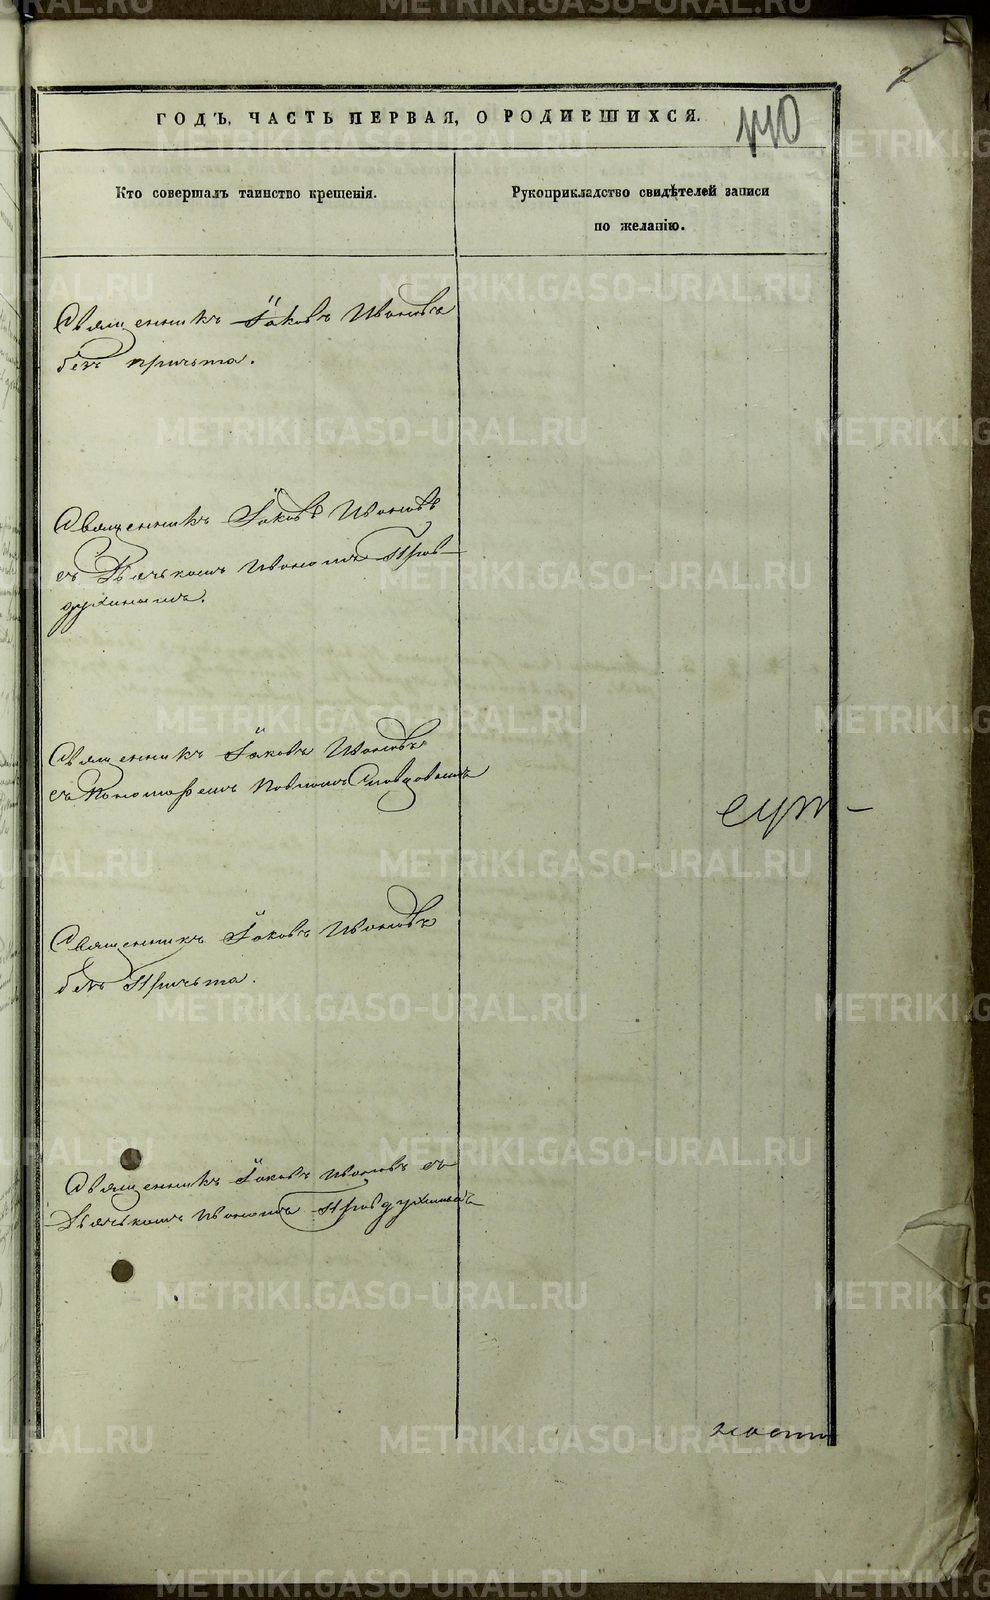 2
140
ГОДЪ, ЧАСТЬ ПЕРВАЯ, О РОДИВШИХСЯ.
Кто совершалъ таинство крещенія.
Рукоприкладство свидѣтелей записи
по желанію.
Священникъ Іаковъ Ивановъ
безъ причта.
Священникъ Іаковъ Ивановъ
съ Дьячькомъ Иваномъ
Священникъ Іаковъ Ивановъ
съ Пономаремъ Павломъ Словцовымъ
Священникъ Іаковъ Ивановъ
безъ Причта.
Священникъ Іаковъ Ивановъ съ
Дьячькомъ Иваномъ
METRIKI.GASO-URAL.RU